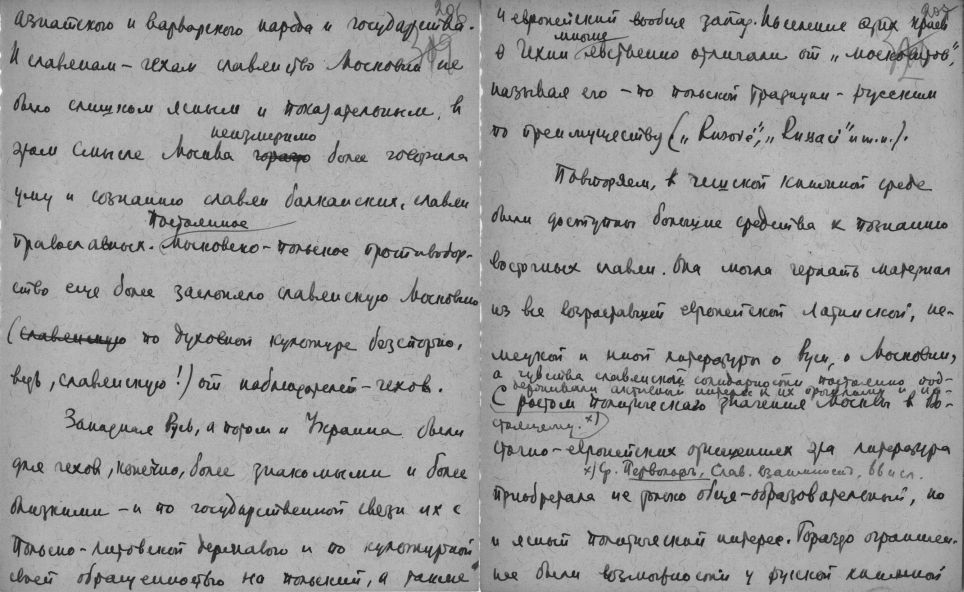 азиатского и варварского народа и государства.
И славянам-чехам славянство Московии не
было слишком ясным и показательным, в
неизмеримо
этом смысле Москва гораздо более говорила
уму и сознанию славян балканских, славян
Постоянное
православных. Московско-польское противобор-
ство еще более заслоняло славянскую Московию
(славянскую по духовной культуре безспорно,
ведь, славянскую!) от наблюдателей-чехов.
Западная Русь, а потом и Украина были
для чехов, конечно, более знакомыми и более
близкими – и по государственной связи их с
Польско-литовской державою и по культурной
своей обращенностью на польский, а также
и европейский вообще запад. Население этих краев
многие
в Чехии явственно отличали от „московитов",
называя его – по польской традиции – русским
по преимуществу („Rusové", „Rusaci" и т.п.).
Повторяем, в чешской книжной среде
были доступны большие средства к познанию
восточных славян. Она могла черпать материал
из все возраставшей европейской латинской, не-
мецкой и иной литературы о Руси, о Московии,
а чувства славянской солидарности постоянно под-
держивали активный интерес к их прошлому и на-
стоящему. х)
С ростом политического значения Москвы в во-
сточно-европейских отношениях эта литература
х) Ср. Первольф, Слав. взаимность,
приобретала не только обще-образовательный, но
и ясный политический интерес. Гораздо ограничен-
нее были возможности у русской книжной